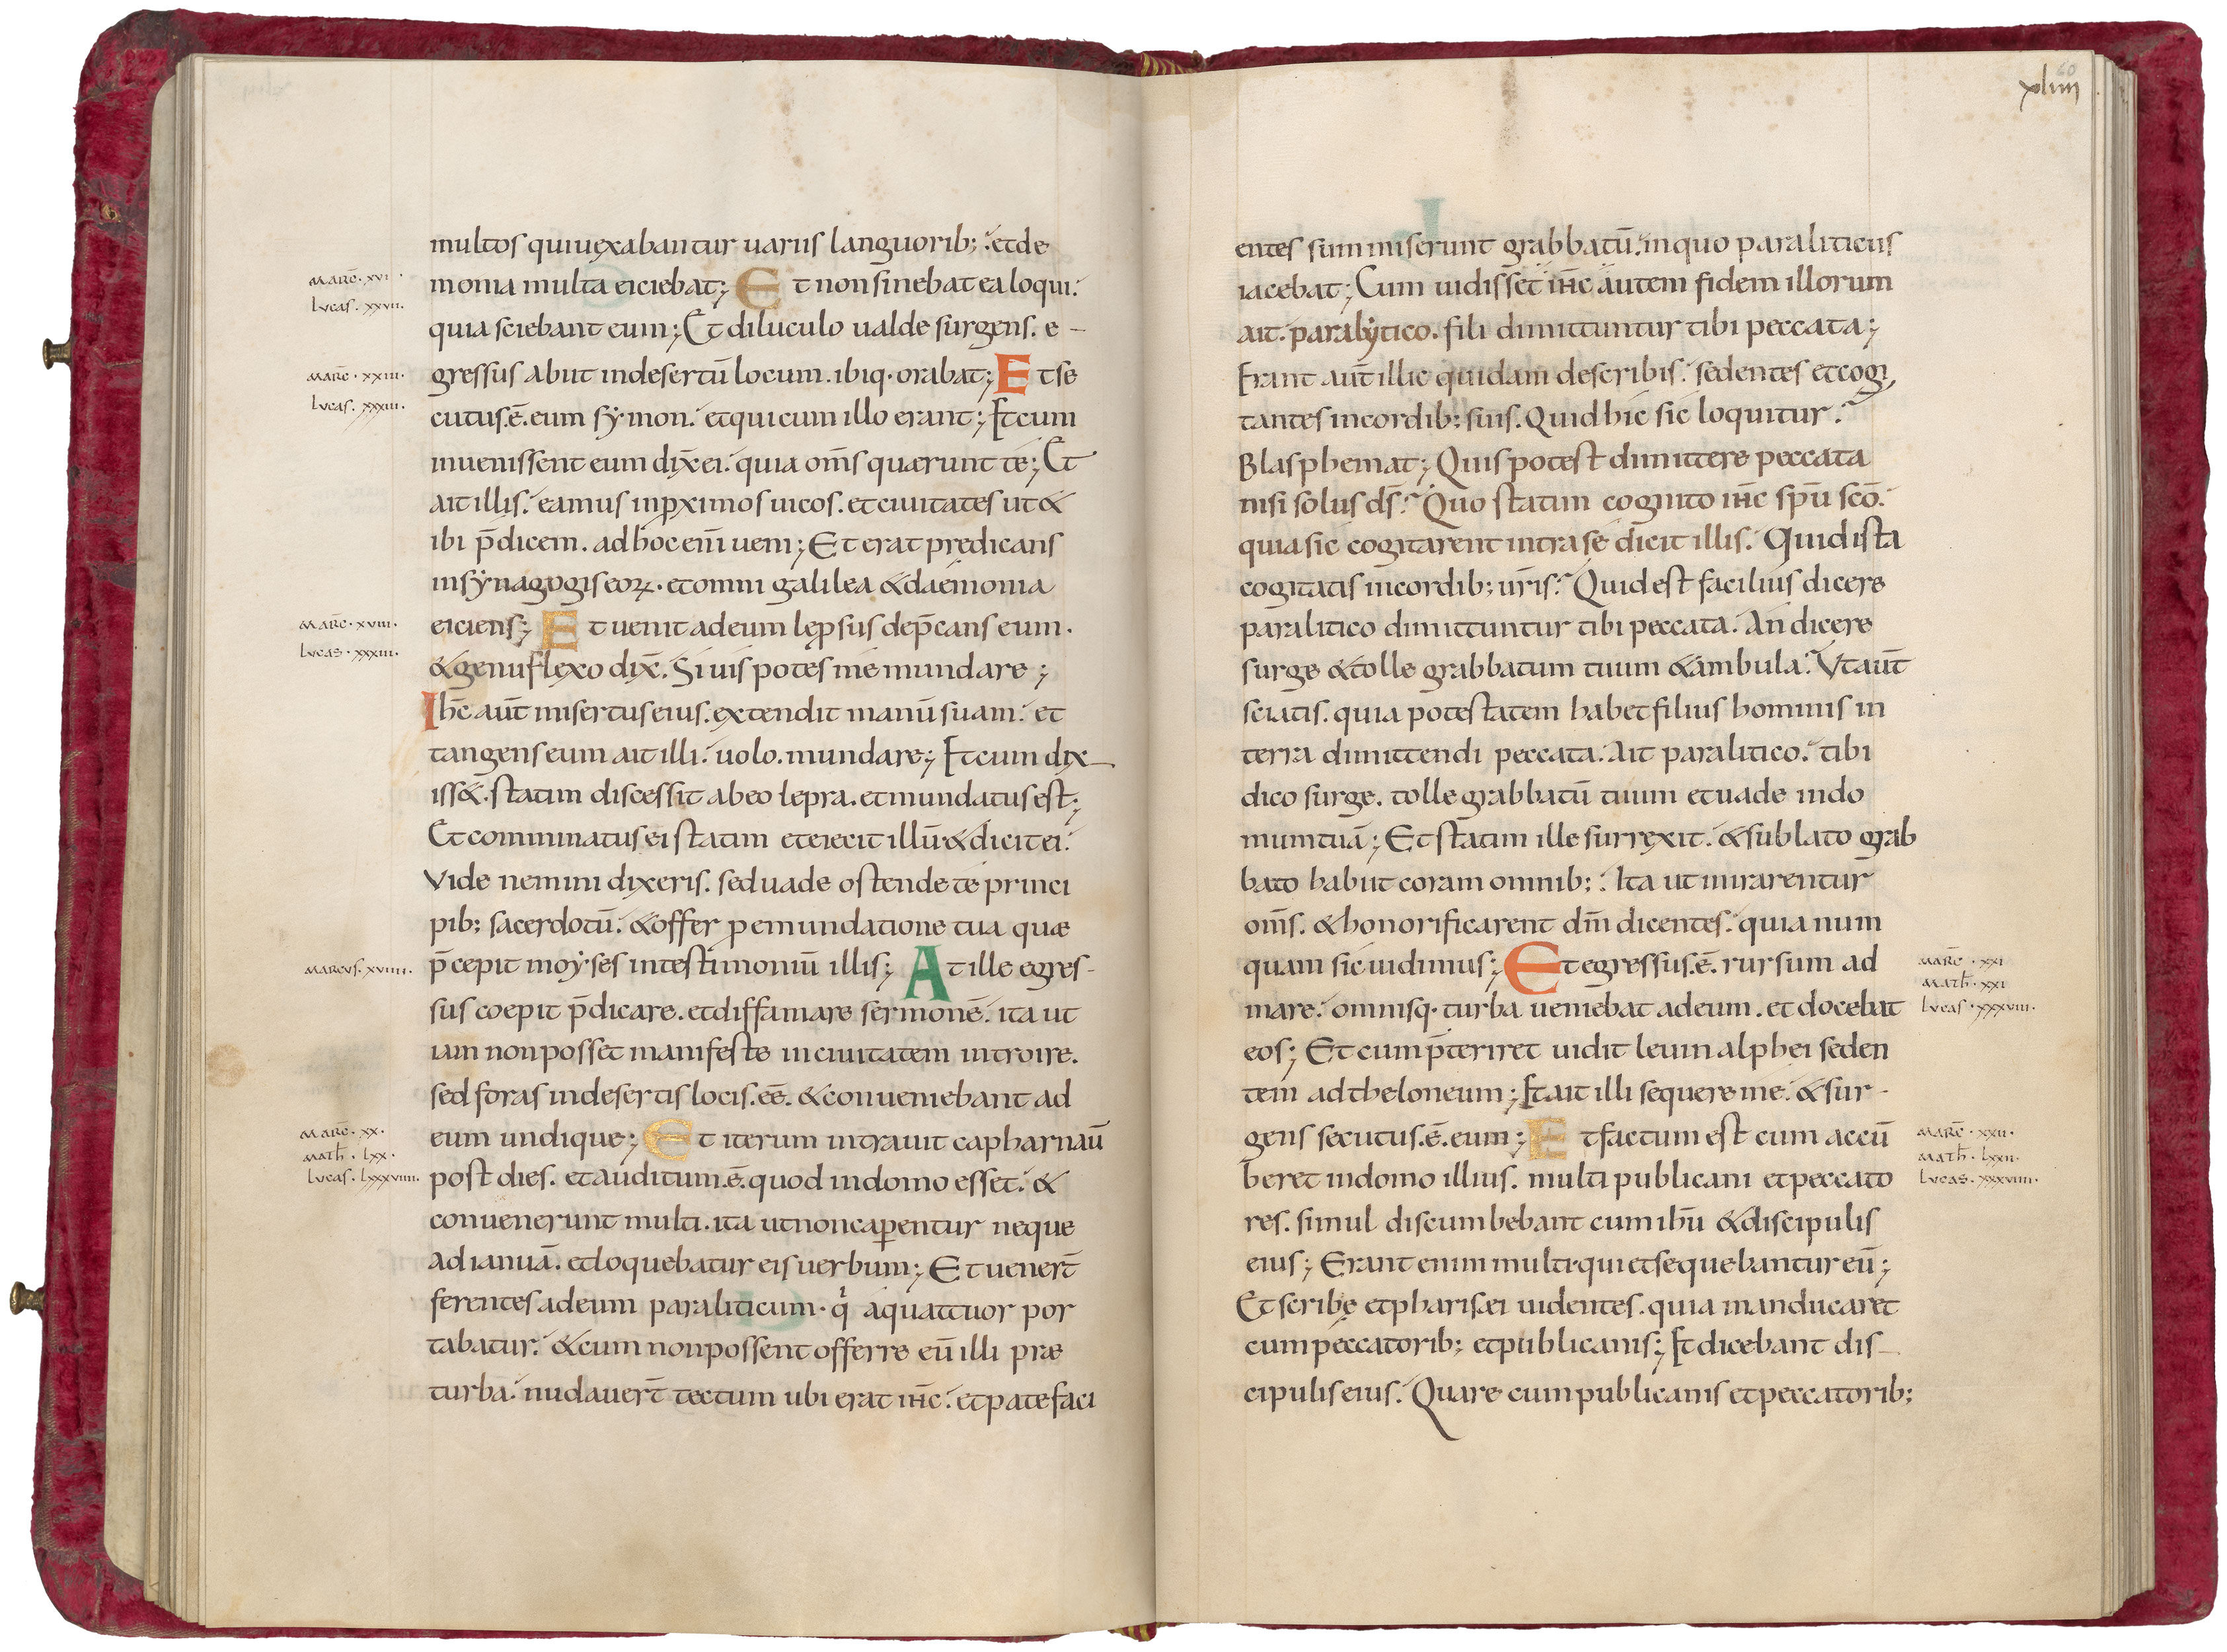 multos qui uexabantur uariis languorib; et de
Marc̄ · xvi ·
Lucas · xxvii ·
monia multa eiciebat; Et non sinebat ea loqui.
quia sciebant eum; Et diluculo ualde surgens. e-
Marc̄ · xxiii ·
Lucas · xxxiii ·
gressus abiit in desertū locum. ibiq· orabat; Et se
cutus.ē. eum symon. et qui cum illo erant; Et cum
inuenissent eum dix̄ ei. quia om̄s quaerunt te; Et
ait illis. eamus in ꝓximos uicos. et ciuitates ut &
ibi p̄dicem. ad hoc eni̅ ueni; Et erat prędicans
in synagogis eoꝝ. et omni galilea & daemonia
Marc̄ · xviii ·
Lucas · xxxiii ·
eiciens; Et uenit ad eum lepsus dep̄cans eum.
& genu flexo dix̄. Si uis potes me mundare;
Ih̄c aūt misertus eius. extendit manū suam. et
tangens eum ait illi. uolo. mundare; Et cum dix
iss&. statim discessit ab eo lepra. et mundatus est;
Et comminatus ei statim et eiecit illū & dicit ei.
Vide nemini dixeris. sed uade ostende te princi
pib; sacerdotū. & offer ꝓ emundatione tua quæ
Marcus · xviiii ·
p̄cepit moyses in testimoniū illis; At ille egres-
sus coepit p̄dicare. et diffamare sermonē. ita ut
iam non posset manifeste in ciuitatem introire.
sed foras in desertis locis.eē. & conueniebant ad
Marc̄ · xx ·
Math̄ · lxx ·
Lucas · lxxxviiii ·
eum undique; Et iterum intrauit capharnaū
post dies. et auditum.ē. quod in domo esset. &
conuenerunt multi. ita ut non caꝑentur neque
ad ianuā. et loquebatur eis uerbum; Et uener̄t
ferentes ad eum paraliticum. qͥ a quattuor por
tabatur. & cum non possent offerre eū illi præ
turba. nudauer̄t tectum ubi erat ih̄c. et patefaci
60
xliiii
entes summiserunt grabbatū. in quo paraliticus
iacebat; Cum uidisset ih̄c autem fidem illorum
ait. paralytico. fili dimittuntur tibi peccata;
Erant aūt illic quidam de scribis. sedentes et cogi
tantes in cordib; suis. Quid hic sic loquitur.
Blasphemat; Quis potest dimittere peccata
nisi solus dS̄. Quo statim cognito ih̄c sp̄u scō.
quia sic cogitarent intra se dicit illis. Quid ista
cogitatis in cordib; ur̄is. Quid est facilius dicere
paralitico dimittuntur tibi peccata. An dicere
surge & tolle grabbatum tuum & ambula. Vt aūt
sciatis. quia potestatem habet filius hominis in
terra dimittendi peccata. Ait paralitico. tibi
dico surge. tolle grabbatū tuum et uade in do
mum tuā; Et statim ille surrexit. & sublato grab
bato habiit coram omnib; Ita ut mirarentur
om̄s. & honorificarent dm̄ dicentes. quia num
quam sic uidimus; Et egressus.ē. rursum ad
Marc̄ · xxi
Math̄ · xxi
Lucas · xxxviii ·
mare. omnisq· turba ueniebat ad eum. et docebat
eos; Et cum p̄teriret uidit leuin alphei seden
tem ad theloneum; Et ait illi sequere me. & sur-
gens secutus.ē. eum; Et factum est cum accū
Marc̄ · xxii ·
Math̄ · lxxii ·
Lucas · xxxviiii ·
beret in domo illius. multi publicani et peccato
res. simul discumbebant cum ihū & discipulis
eius; Erant enim multi. qui et sequebantur eū;
Et scribę et pharisei uidentes. quia manducaret
cum peccatorib; et publicanis; Et dicebant dis
cipulis eius. Quare cum publicanis et peccatorib;